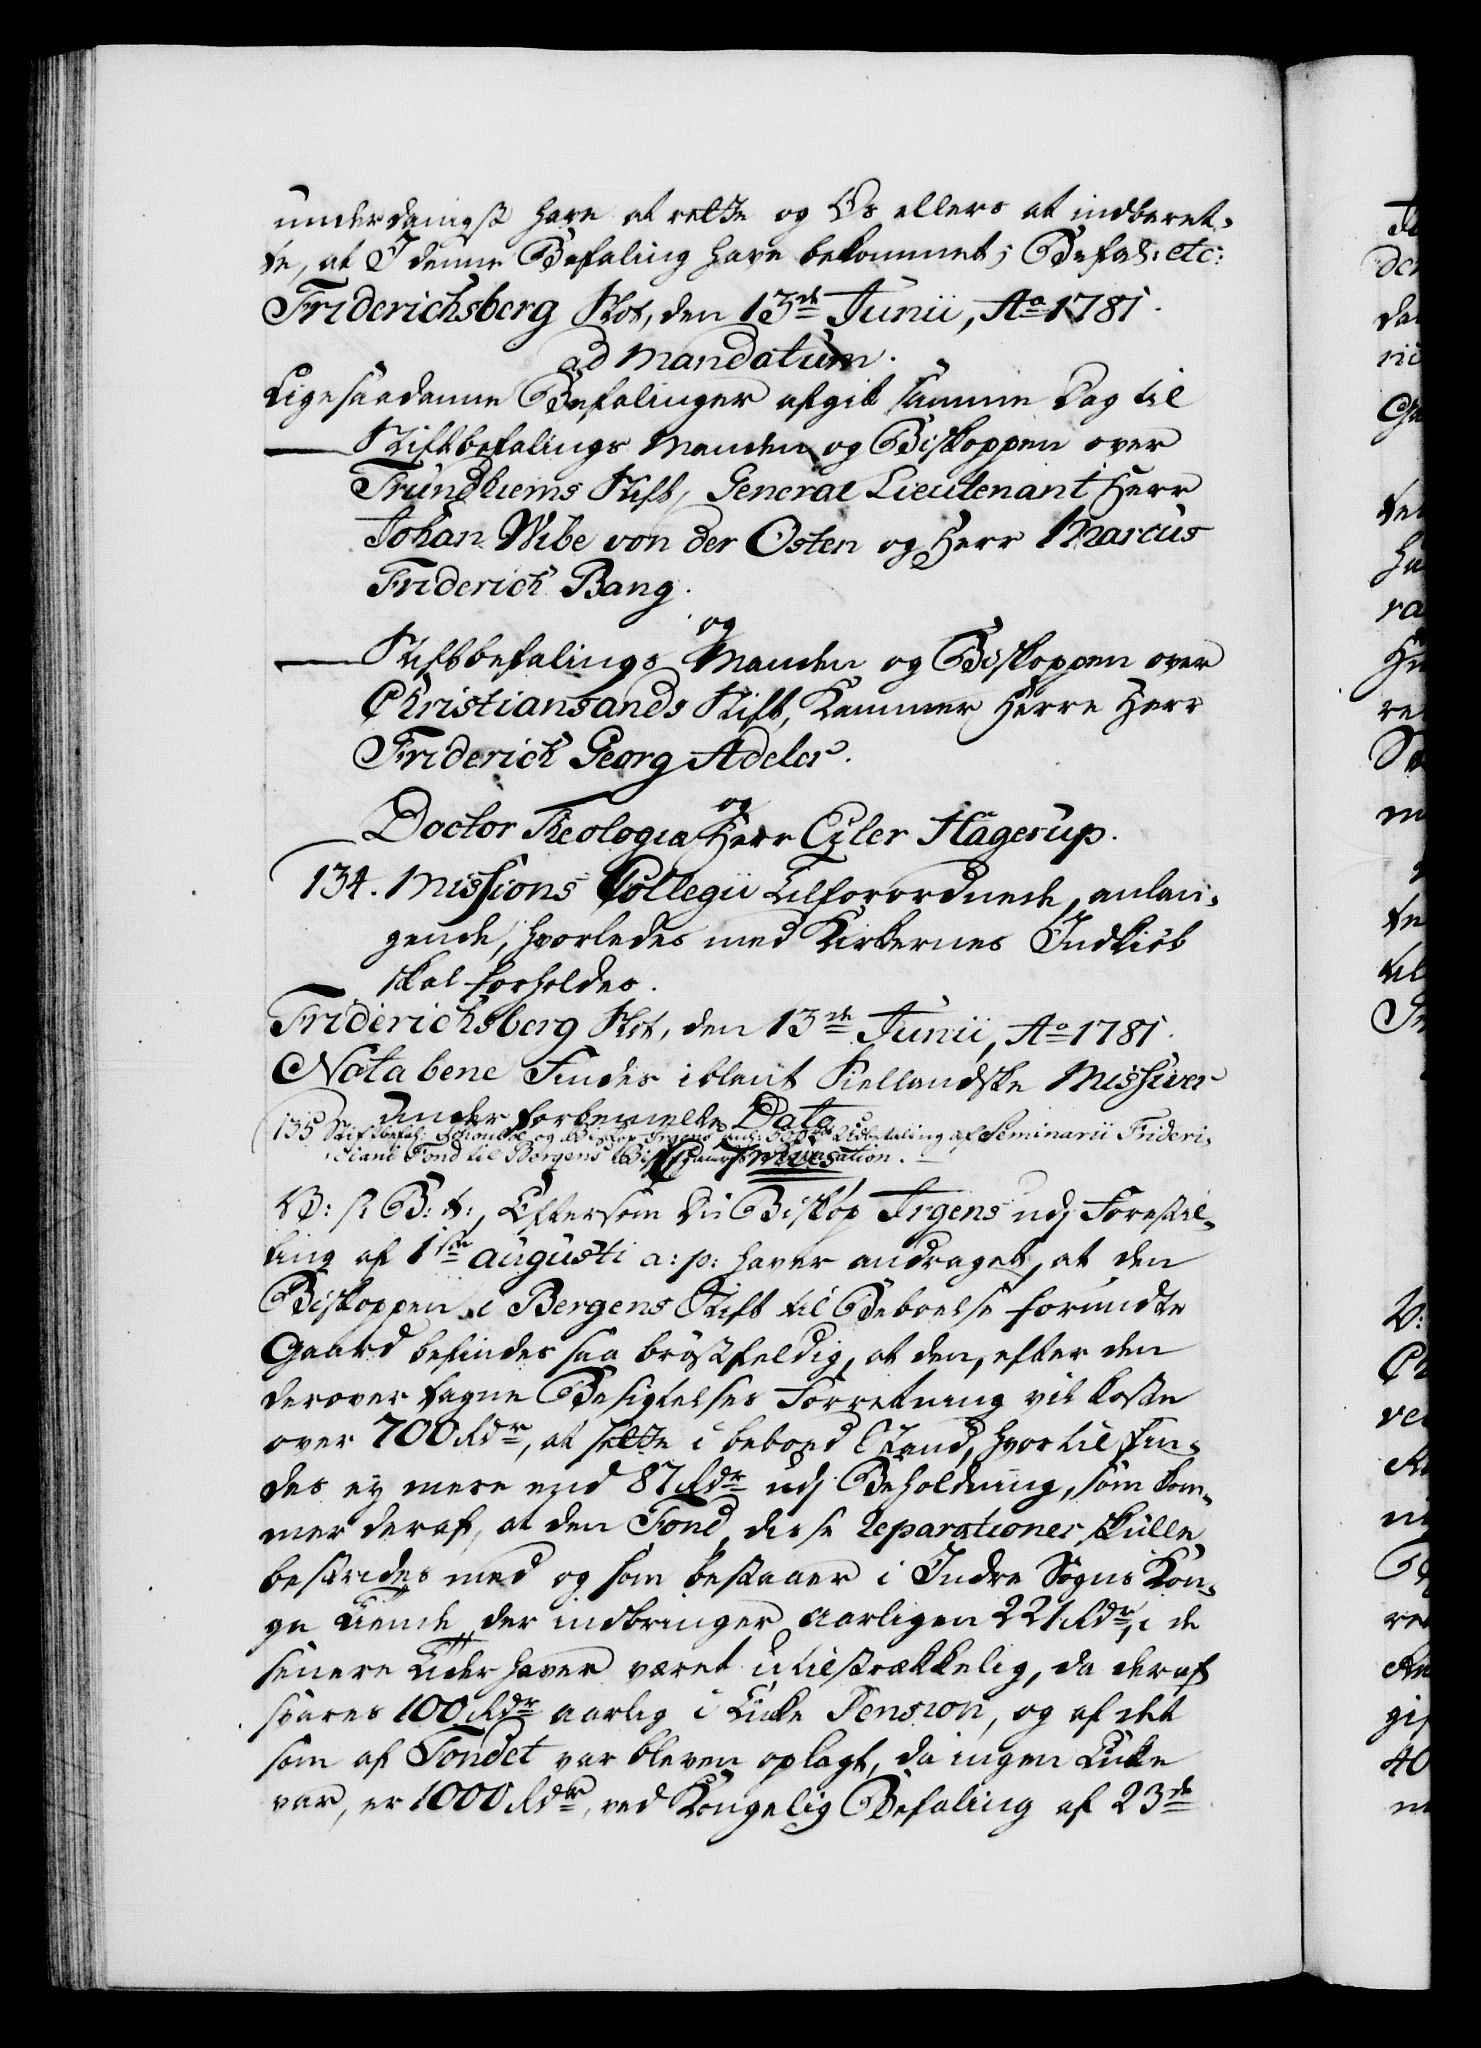 underdanigst have at rette og Os ellers at indberet-
te, at I denne Befaling have bekommet; Befal: etc:
Friderichsberg Slot, den 13de Junii, Ao 1781.
ad Mandatum.
Ligesaadanne Befalinger afgik samme Dag til
Stiftbefalings Manden og Biskoppen over
Trundhiems Stift, General Lieutenant Herr
Johan Wibe von der Osten og Herr Marcus
Friderich Bang.
og
Stiftbefalings Manden og Biskoppen over
Christiansands Stift, Kammer Herre Herr
Friderich Georg Adeler.
og
Doctor Theologiæ Herr Eyler Hagerup.
134. Missions Collegii Tilforordnede, anlan-
gende, hvorledes med Kirkernes Indkiøb
skal forholdes.
Friderichsberg Slot, den 13de Junii, Ao 1781.
Nota bene Findes iblant Siellandske Missiver
under forbemelte Dato
135 Stiftbefal: og Biskop Irgens anl: 500 Rdr Udbetaling af Seminarii Frideri-
ciani Fond til Bergens Bispegaards Reparation.
V: S: B: t:, Eftersom Du Biskop Irgens udj Forestil-
ling af 1ste Augusti a: p: haver andraget, at den
Biskoppen i Bergens Stift til Beboelse forundte
Gaard befindes saa brøstfeldig, at den, efter den
derover tagne Besigtelses Forretning vil koste
over 700 Rdr, at sette i beboed Stand, hvortil fin-
des ey mere end 87 Rdr udj Beholdning, som kom-
mer deraf, at den Fond, disse Reparationer skulle
bestrides med og som bestaaer i Indre Sogns Kon-
ge Tiende, der indbringer aarligen 221 Rdr, i de
senere Tider haver været utilstrækkelig, da deraf
svares 100 Rdr aarlig i Enke Pension, og af det
som af Fondet var bleven oplagt, da ingen Enke
var, er 1000 Rdr, ved Kongelig Befaling af 23de